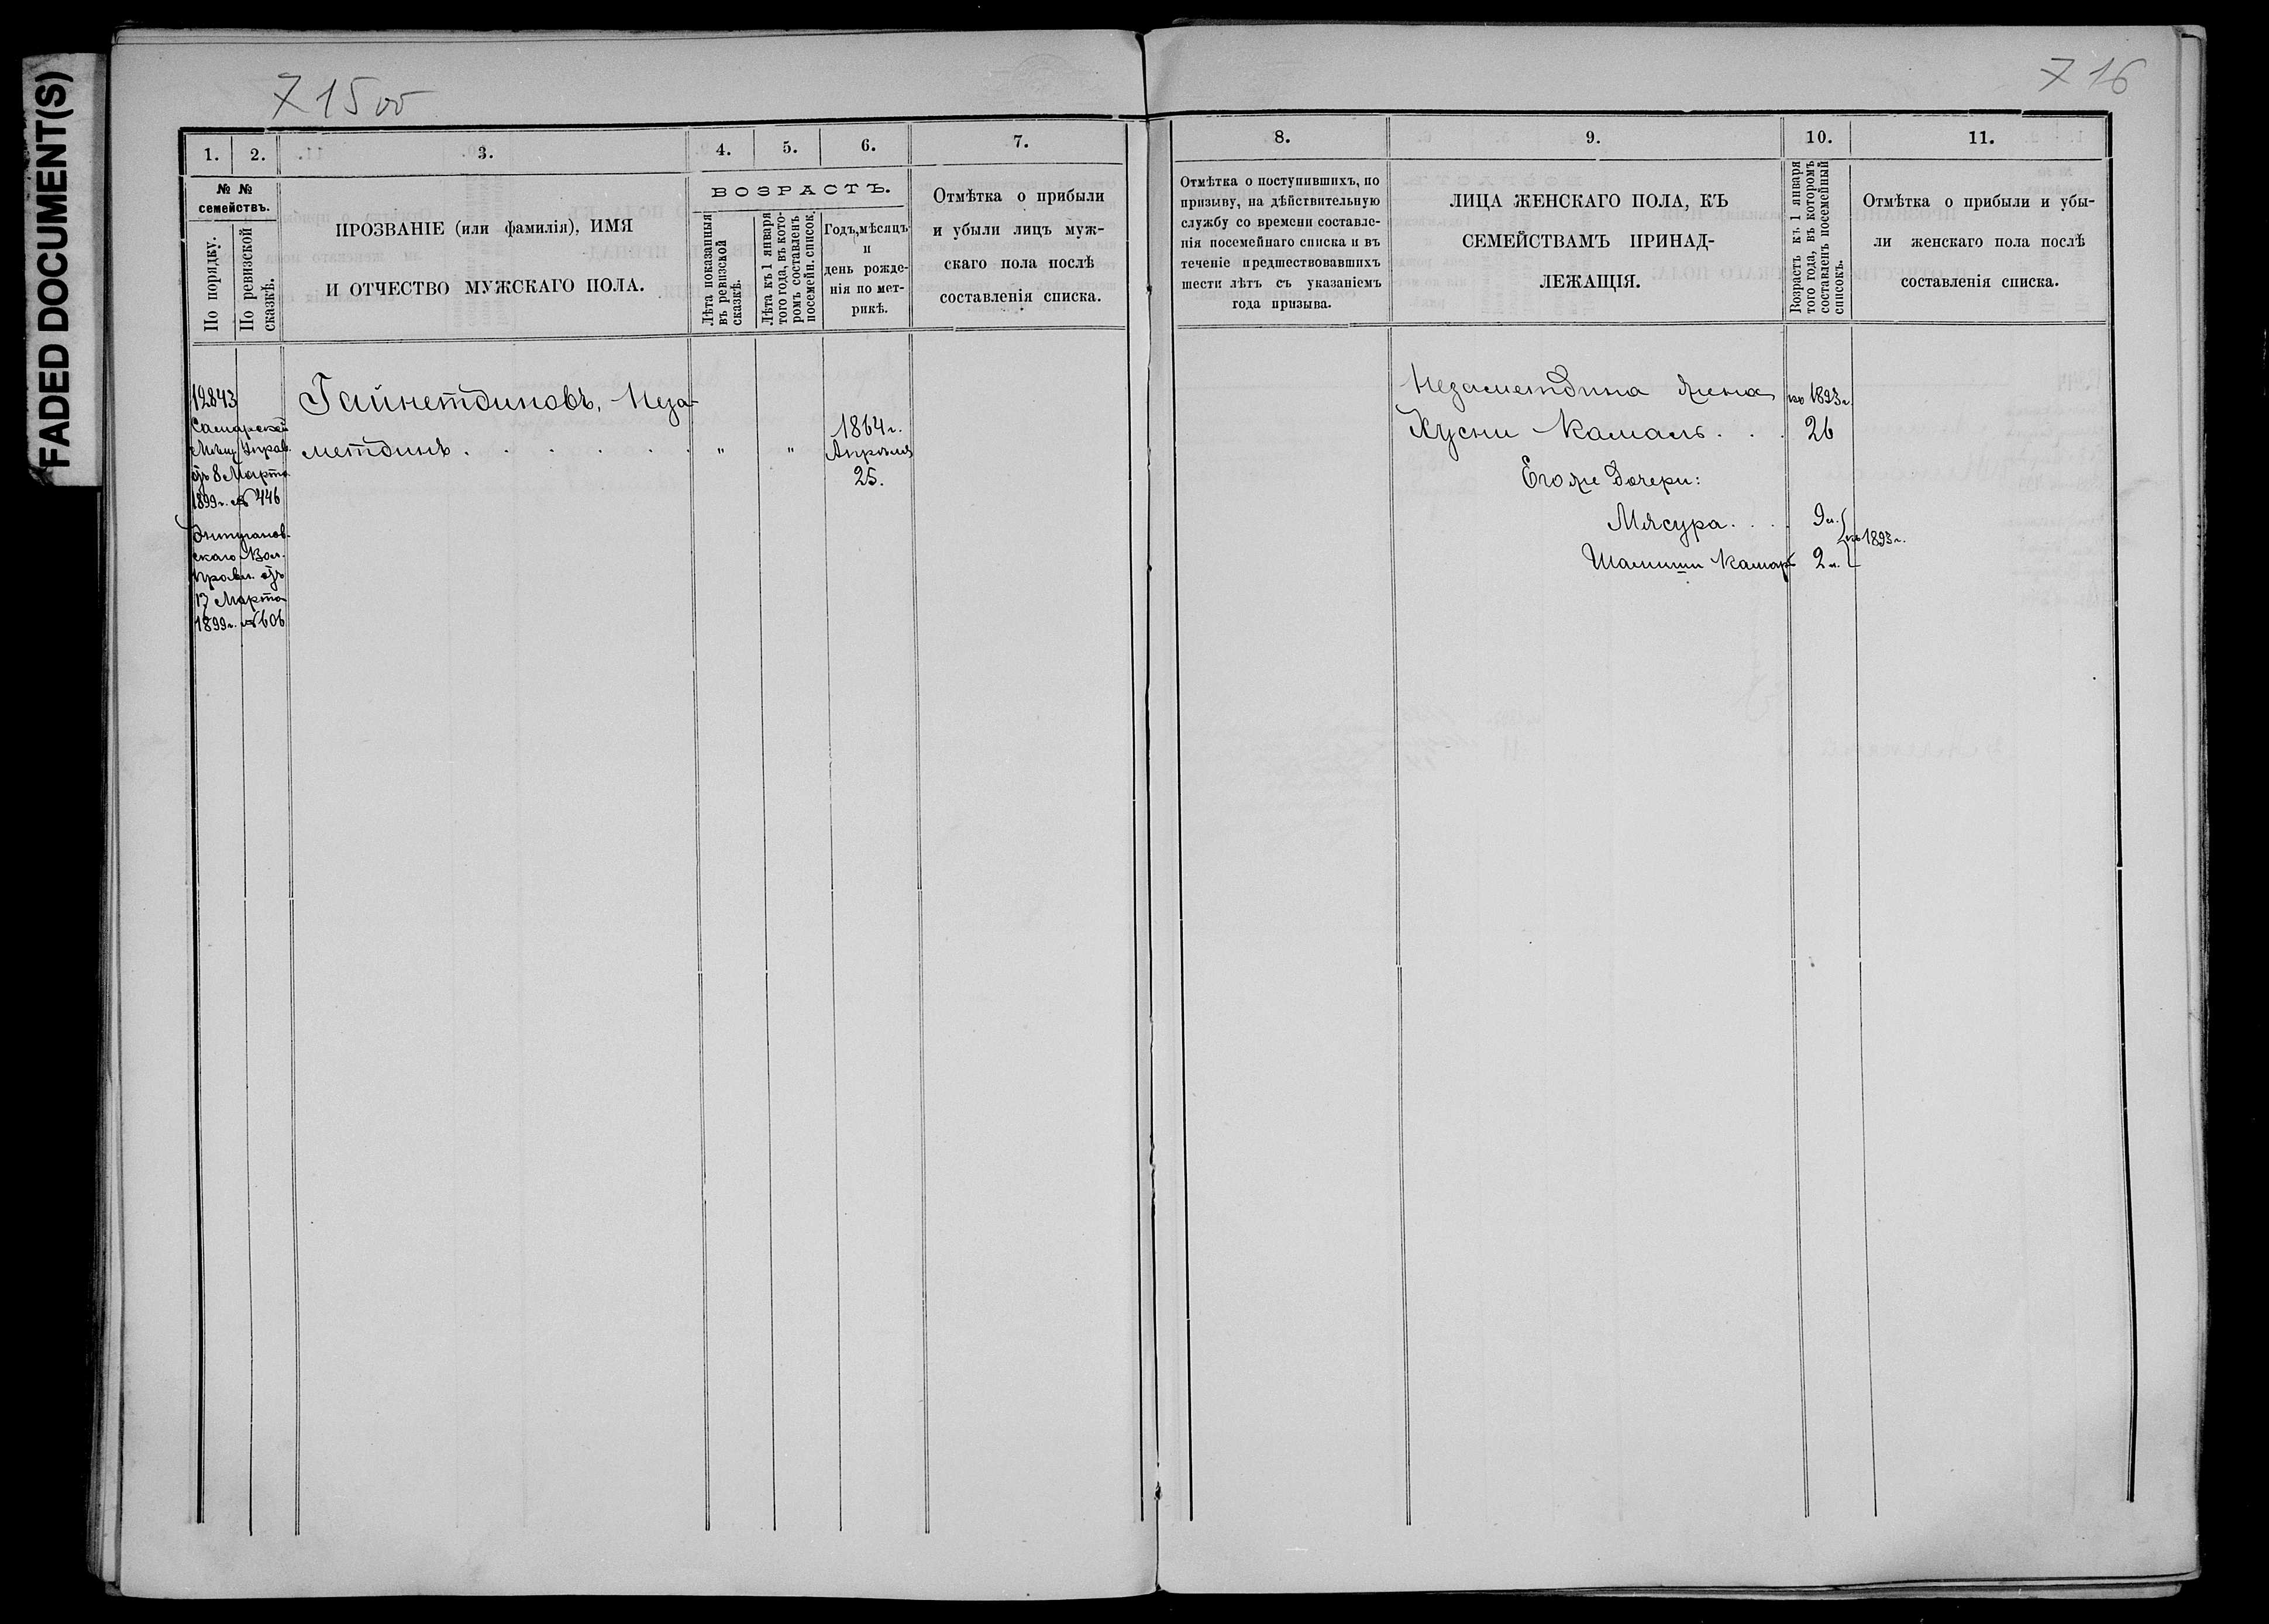 FADED DOCUMENT(S)
715 об
716
1. 2. 3. 4. 5. 6. 7.
№ №
семействъ.
По порядку.
По ревизской
сказкѣ.
ПРОЗВАНІЕ (или фамилія), ИМЯ
И ОТЧЕСТВО МУЖСКАГО ПОЛА.
ВОЗРАСТЪ.
Лѣта показанныя
въ ревизской
сказкѣ.
Лѣта къ 1 января
того года, въ кото-
ромъ составленъ
посемейн. список.
Годъ, мѣсяцъ
и
день рожде-
нія по мет-
рикѣ.
Отмѣтка о прибыли
и убыли лицъ муж-
скаго пола послѣ
составленія списка.
12843
Самарской
Мѣщ. Управ.
отъ 8 Марта
1899 г. № 446
скаго Вол.
Правл. отъ
17 Марта
1899 г. № 606
Гайнетдиновъ, Неза-
метдинъ . . . . . . „ „
1864 г.
Апрѣля
25.
8. 9. 10. 11.
Отмѣтка о поступившихъ, по
призыву, на дѣйствительную
службу со времени составле-
нія посемейнаго списка и въ
теченіе предшествовавшихъ
шести лѣтъ съ указаніемъ
года призыва.
ЛИЦА ЖЕНСКАГО ПОЛА, КЪ
СЕМЕЙСТВАМЪ ПРИНАД-
ЛЕЖАЩІЯ.
Возрастъ къ 1 января
того года, въ которомъ
составленъ посемейный
списокъ.
Отмѣтка о прибыли и убы-
ли женскаго пола послѣ
составленія списка.
Незаметдина жена къ 1893 г.
Хусни Камаль . . . 26
Его же дочери:
Мясура . . . 9 л.
къ 1893 г.
Шамши Камар 2 л.